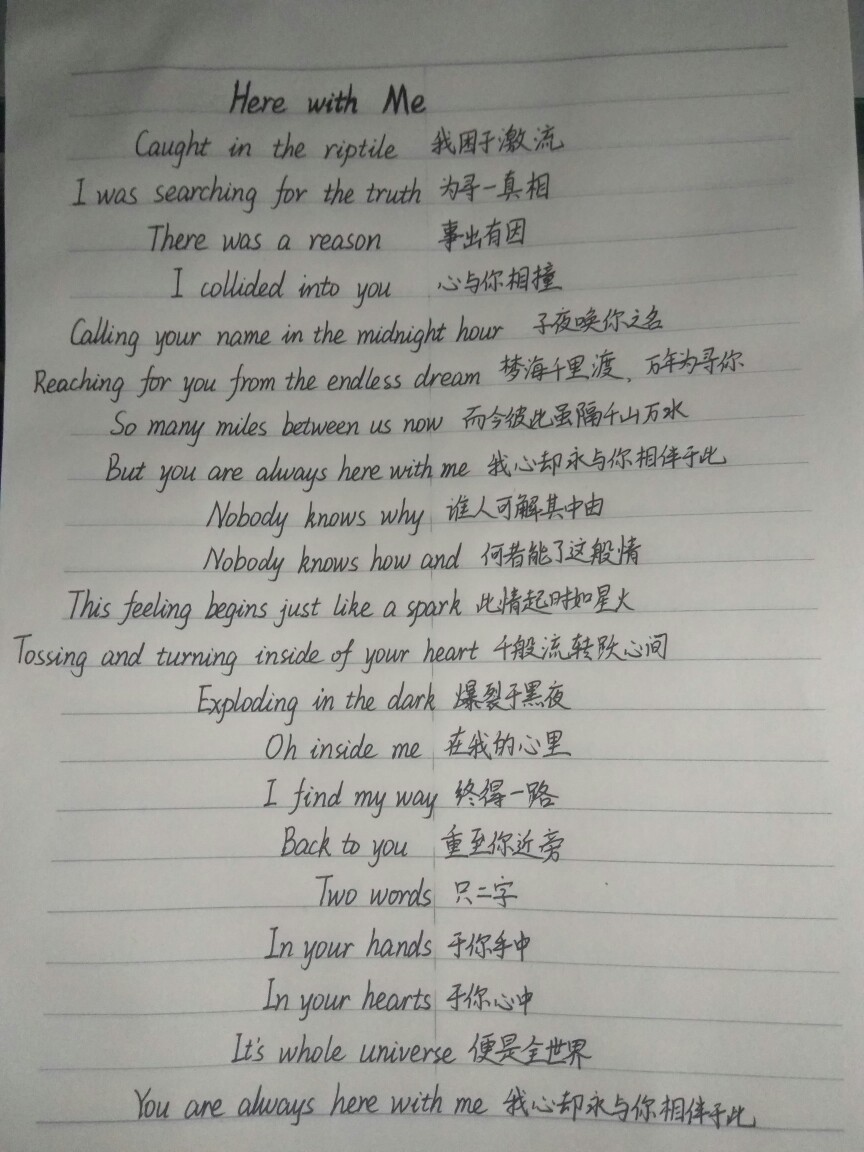 Here with Me
Caught in the riptile 我困于激流
I was searching for the truth 为寻一真相
There was a reason 事出有因
I collided into you 心与你相撞
Calling your name in the midnight hour 子夜唤你之名
Reaching for you from the endless dream 梦海千里渡、万年为寻你
So many miles between us now 而今彼此虽隔千山万水
But you are always here with me 我心却永与你相伴于此
Nobody knows why 谁人可解其中由
Nobody knows how and 何者能了这般情
This feeling begins just like a spark 此情起时如星火
Tossing and turning inside of your heart 千般流转跃心间
Exploding in the dark 爆裂于黑夜
Oh inside me 在我的心里
I find my way 终得一路
Back to you 重至你近旁
Two words 只二字
In your hands 于你手中
In your hearts 于你心中
It's whole universe 便是全世界
You are always here with me 我心却永与你相伴于此